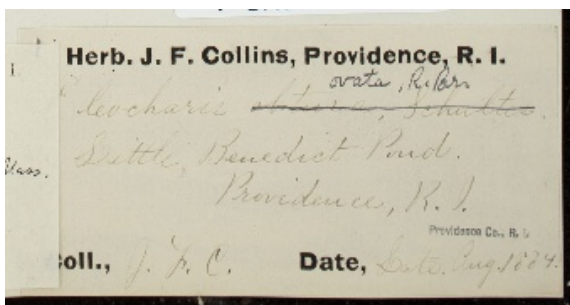 Herb. J. F. Collins, Providence, R. I.
ovata, R. Br.
leocharis obtusa, Schultes.
Little Benedict Pond.
Mass.
Providence, R. I.
Providence Co., R. I.
Coll., J. F. C. Date, Late Aug. 1884.